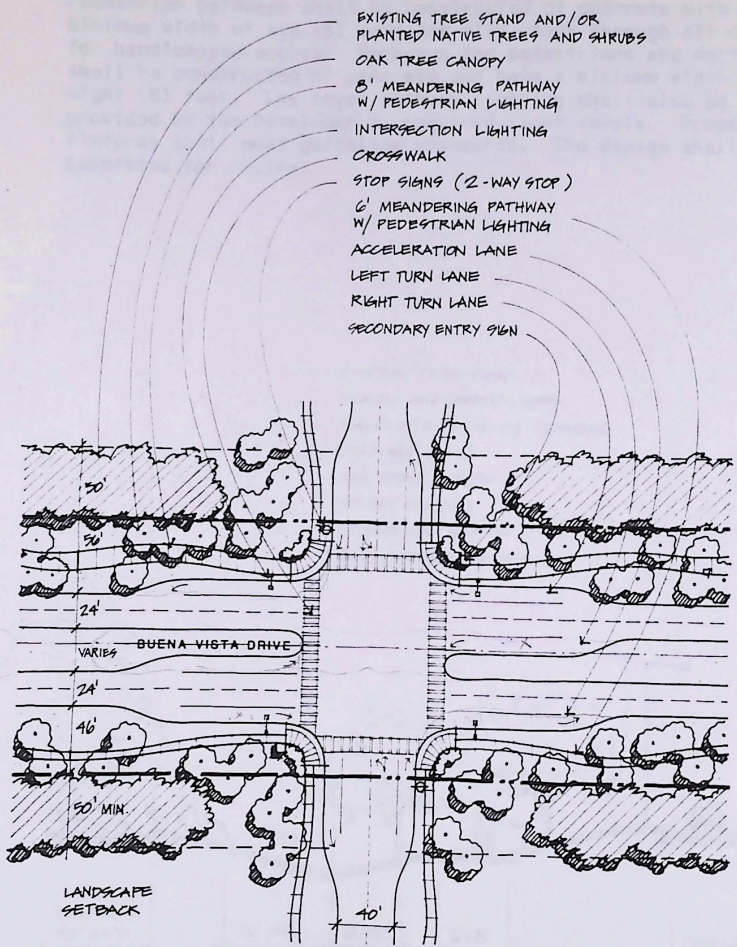 EXISTING TREE STAND AND/OR
PLANTED NATIVE TREES AND SHRUBS
OAK TREE CANOPY
8' MEANDERING PATHWAY
W/ PEDESTRIAN LIGHTING
INTERSECTION LIGHTING
CROSSWALK
STOP SIGNS (2-WAY STOP)
6' MEANDERING PATHWAY
W/ PEDESTRIAN LIGHTING
ACCELERATION LANE
LEFT TURN LANE
RIGHT TURN LANE
SECONDARY ENTRY SIGN
50'
56'
24'
VARIES
BUENA VISTA DRIVE
24'
46'
50' MIN.
LANDSCAPE
SETBACK
40'